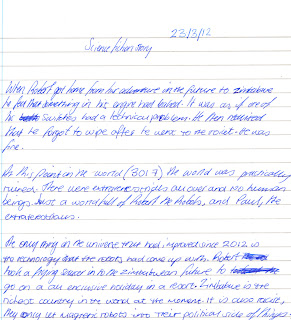 23/3/12
Science fiction story
When Robert got home from his adventure in the future to Zimbabwe
he felt that something in his engine had failed. It was as if one of
his switches had a technical problem. He then noticed
that he forgot to wipe after he went to the toilet. He was
fine.
At this point in the world (3017) the world was practically
ruined. There were extraterrestrials all over and no human
beings. Just a world full of Robert the Robots, and Paul, the
extraterrestrials.
The only thing in the universe that had improved since 2012 is
the technology that the robots had come up with. Robert
took a flying saucer in to the Zimbabwean future to
go on a an exclusive holiday in a resort. Zimbabwe is the
richest country in the world at the moment. It is quite
they only let magnetic robots into their political side of things.